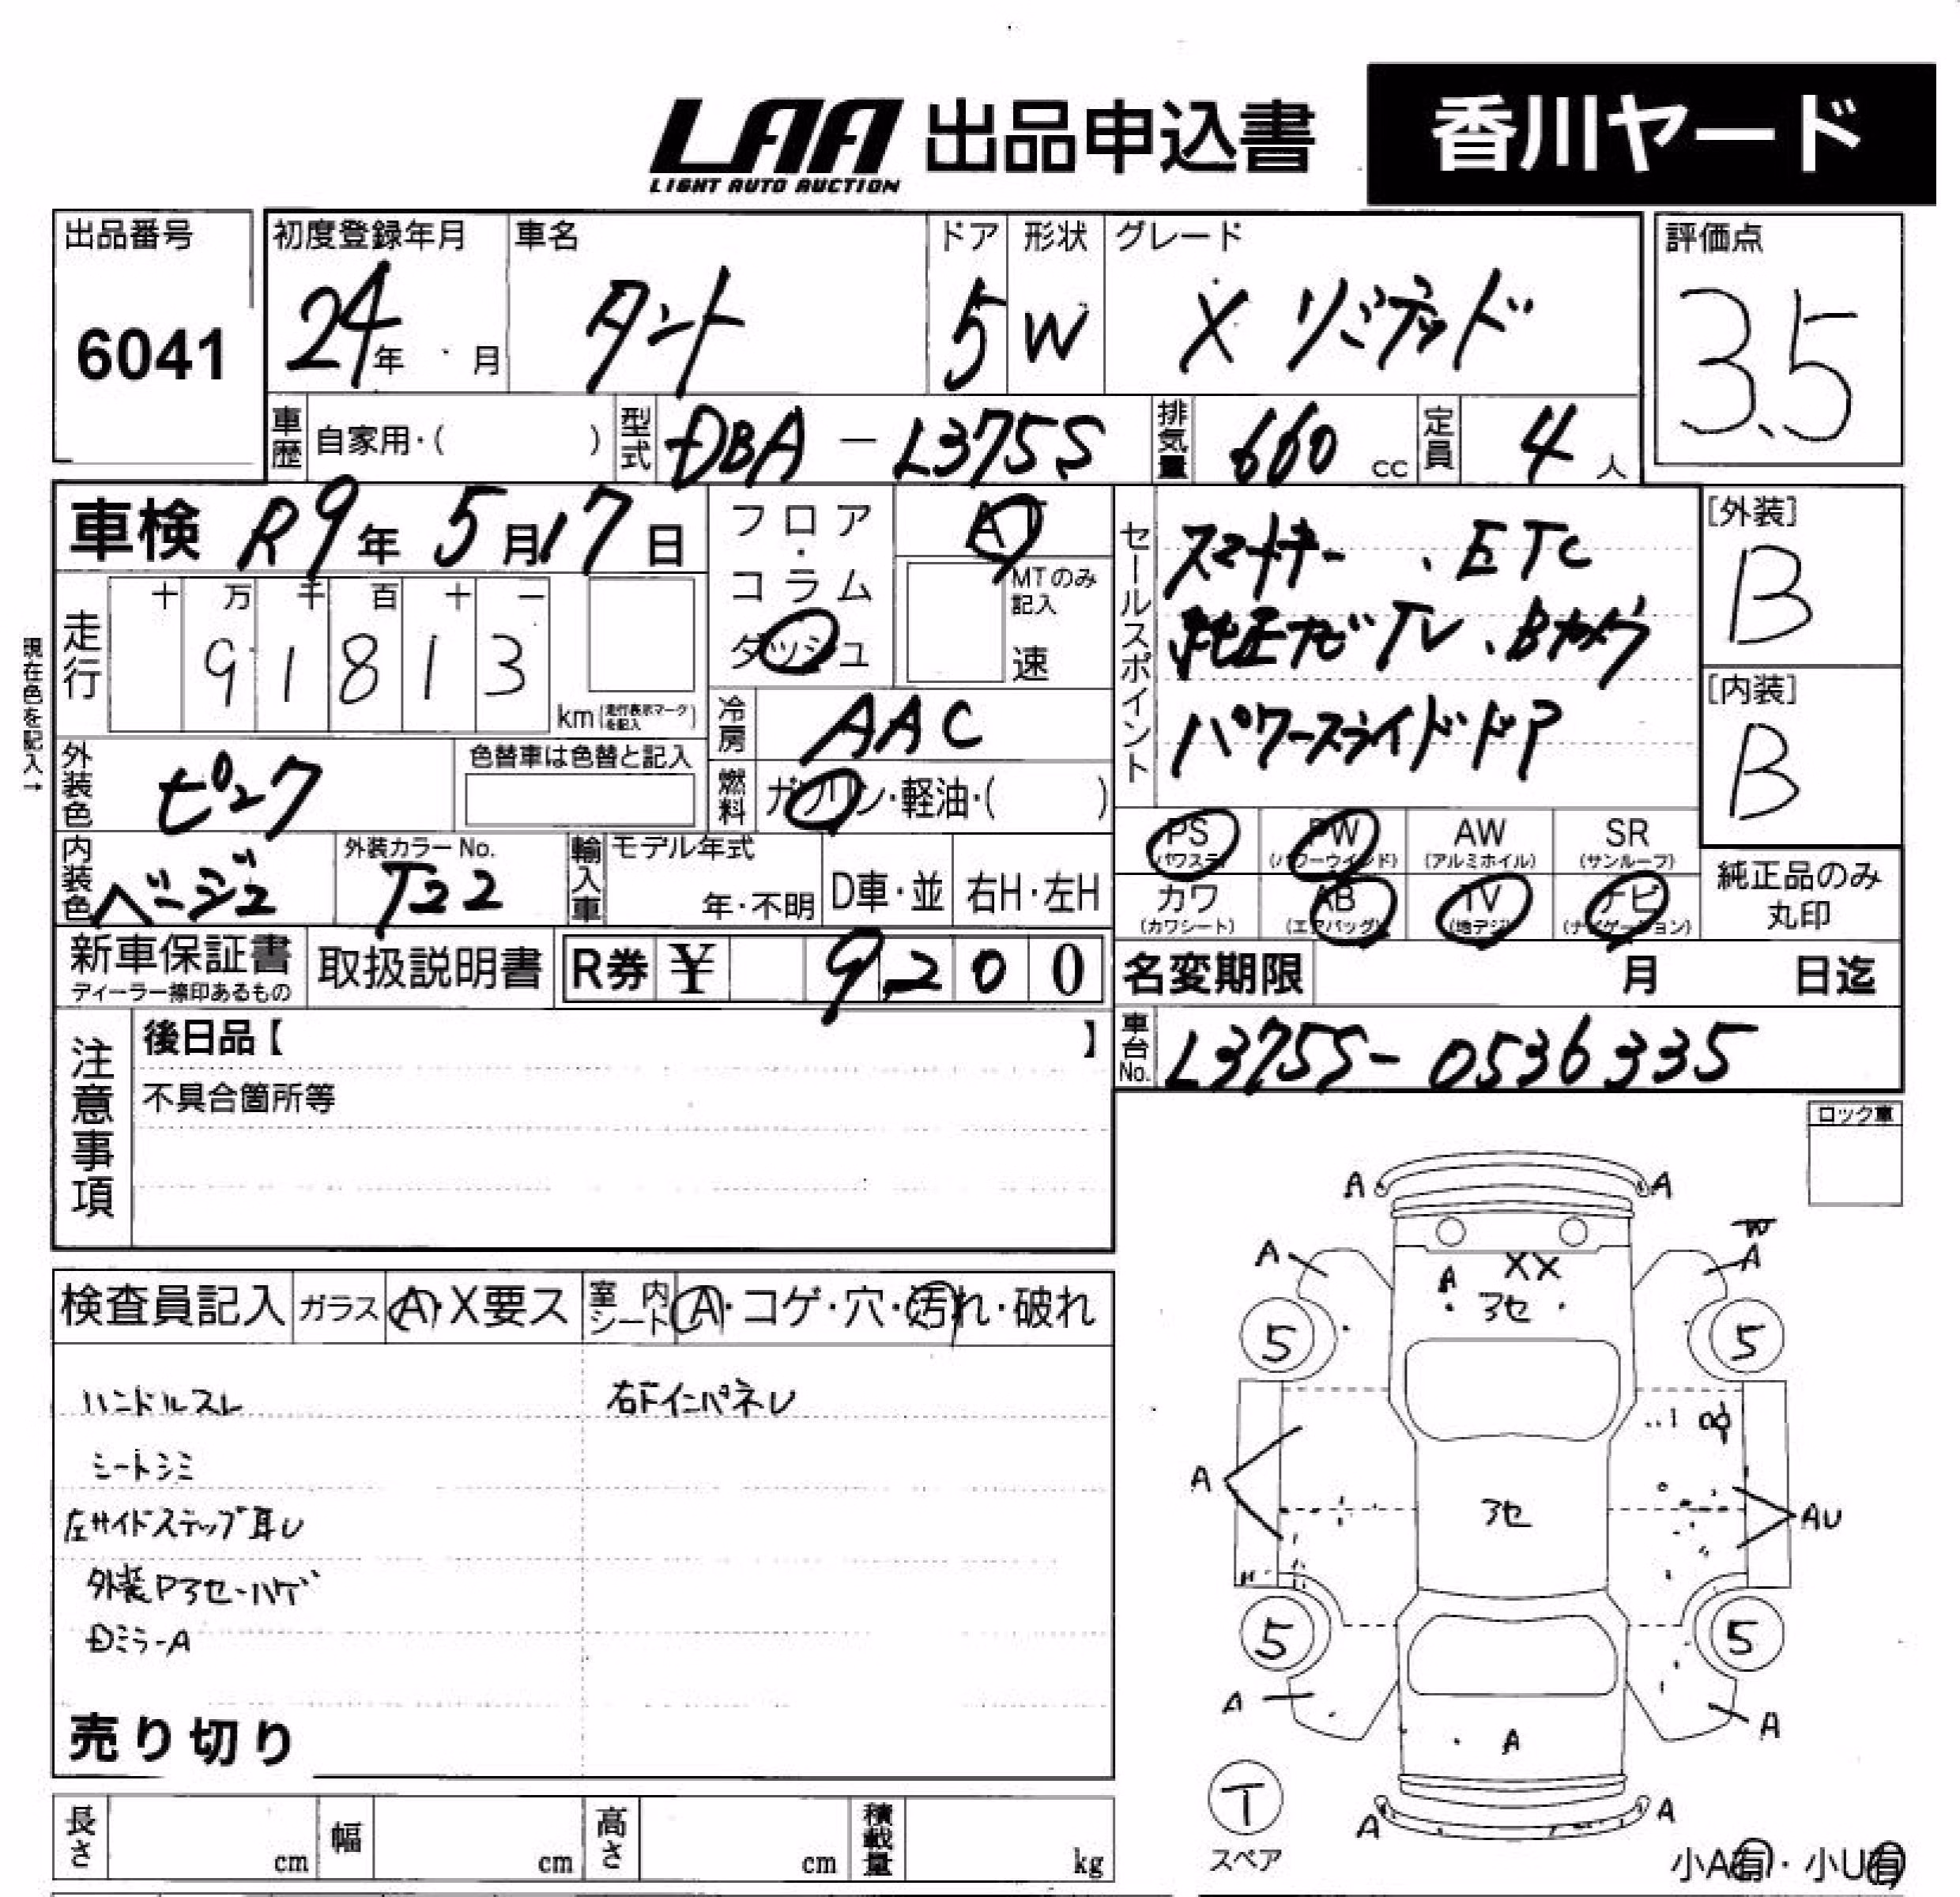 LAA 出品申込書 香川ヤード
LIGHT AUTO AUCTION
出品番号
6041
初度登録年月
24年 月
車名
タント
ドア
5
形状
W
グレード
X リミテッド
評価点
3.5
車歴 自家用・( )
型式 DBA-L375S
排気量 660 cc
定員 4 人
車検 R9年5月17日
フロア・コラム
ダッシュ
AT
MTのみ記入
速
セールスポイント
スマートキー、ETC
純正ナビTV、Bカメラ
パワースライドドア
[外装]
B
[内装]
B
現在色を記入→
走行
十 万 千 百 十 一
9 1 8 1 3
km(走行表示マークを記入)
冷房 AAC
外装色 ピンク
色替車は色替と記入
燃料 ガソリン・軽油・( )
内装色 ベージュ
外装カラーNo.
T22
輸入車
モデル年式
年・不明
D車・並
右H・左H
PS (パワステ)
PW (パワーウインド)
AW (アルミホイル)
SR (サンルーフ)
カワ (カワシート)
AB (エアバッグ)
TV (地デジ)
ナビ (ナビゲーション)
純正品のみ
丸印
新車保証書
ディーラー捺印あるもの
取扱説明書
R券 ¥ 9200
名変期限 月 日迄
注意事項
後日品【 】
不具合箇所等
車台No. L375S-0536335
ロック車
検査員記入
ガラス A・X要ス
室内シート A・コゲ・穴・汚れ・破れ
ハンドルスレ
右下インパネU
シートシミ
左サイドステップ耳U
外装P3セーハゲ
Dミラ-A
売り切り
A A
A XX W
A A
3セ
5 5
A 3セ AU
5 5
A A A
T
スペア
A A
小A有・小U有
長さ cm
幅 cm
高さ cm
積載量 kg